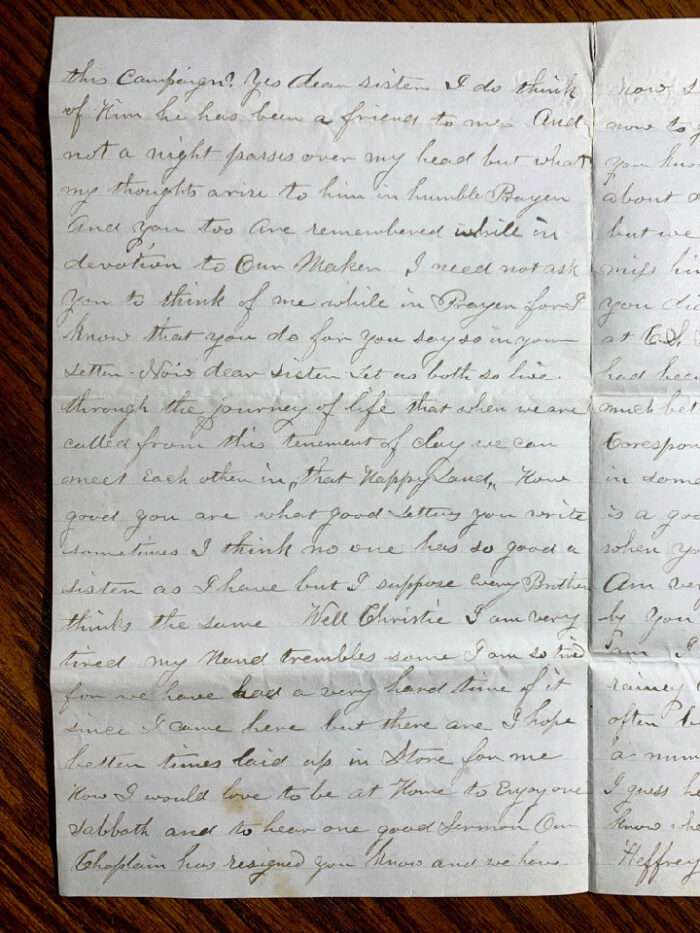 this Campaign? Yes dear sister I do think
of Him he has been a friend to me And
not a night passes over my head but what
my thoughts arise to him in humble Prayer
And you too Are remembered while in
devotion to Our Maker I need not ask
you to think of me while in Prayer for I
know that you do for you say so in your
Letter. Now dear sister Let us both so live
through the journey of life that when we are
called from this tenement of clay we can
meet Each other in "that Happy Land" How
good you are what good Letters you write
sometimes I think no one has so good a
sister as I have but I suppose Every Brother
thinks the same Well Christie I am very
tired my Hand trembles some I am so tired
for we have had a very hard time of it
since I came here but there are I hope
better times laid up in Store for me
How I would love to be at Home to Enjoy one
Sabbath and to hear one good Sermon Our
Chaplain has resigned you know and we have
now
now to
you
about
but we
miss
you
at
had
much
in some
is a
when
Am
by You
I
rainey
often
a
I guess
know